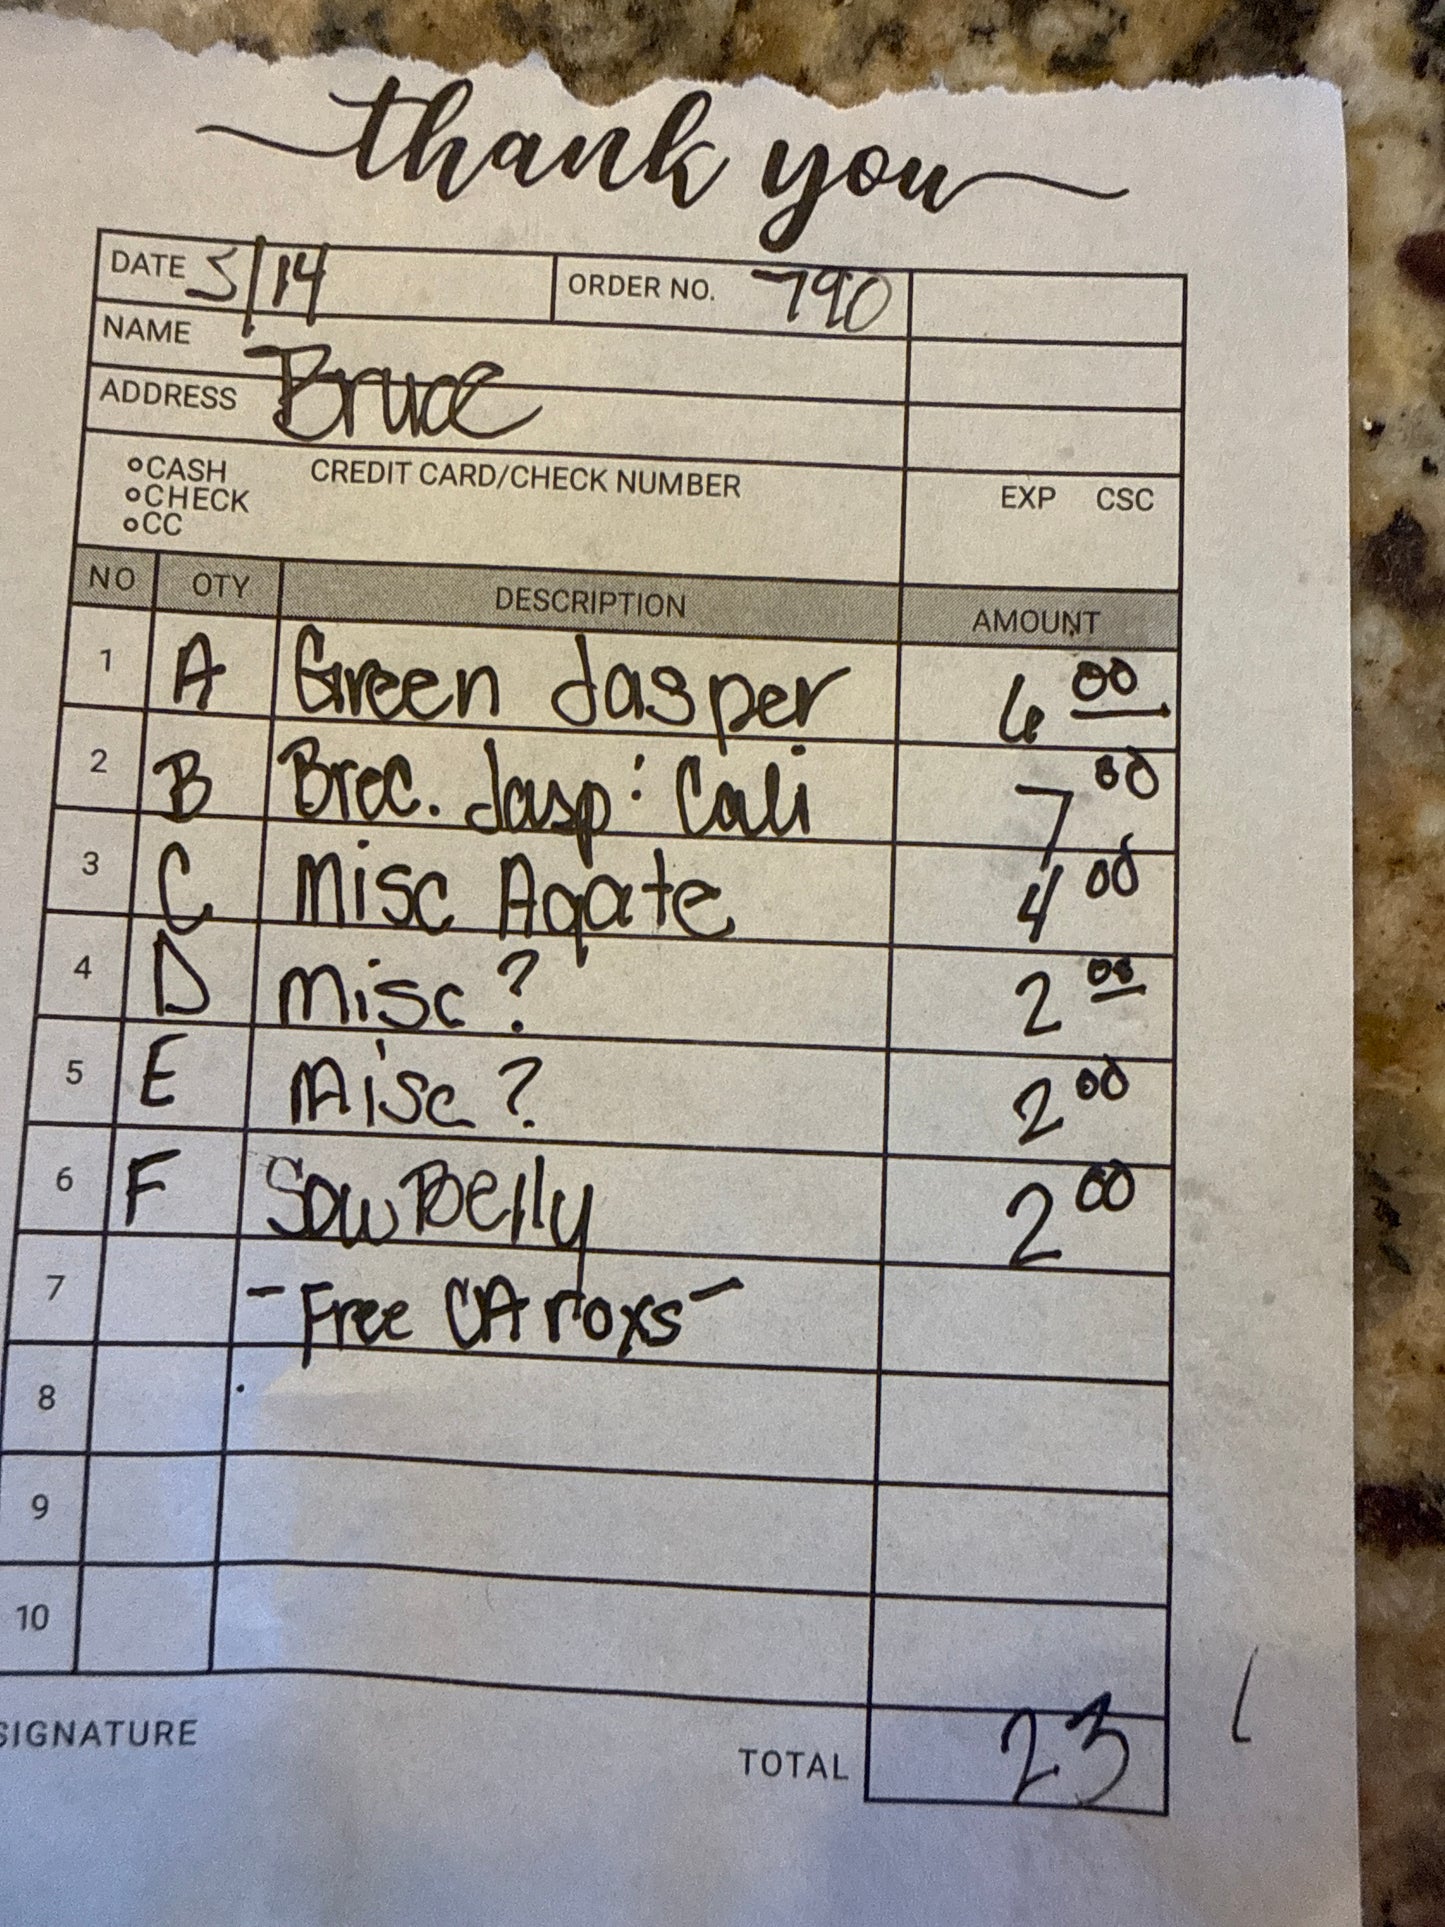 thank you
DATE 5/14 ORDER NO. 790
NAME Bruce
ADDRESS
CASH CREDIT CARD/CHECK NUMBER EXP CSC
CHECK
CC
NO QTY DESCRIPTION AMOUNT
1 A Green Jasper 6 00
2 B Brec. Jasp: Cali 7 00
3 C Misc Agate 4 00
4 D Misc ? 2 00
5 E Misc ? 2 00
6 F SowBelly 2 00
7 - Free CA roxs -
8
9
10
SIGNATURE TOTAL 23